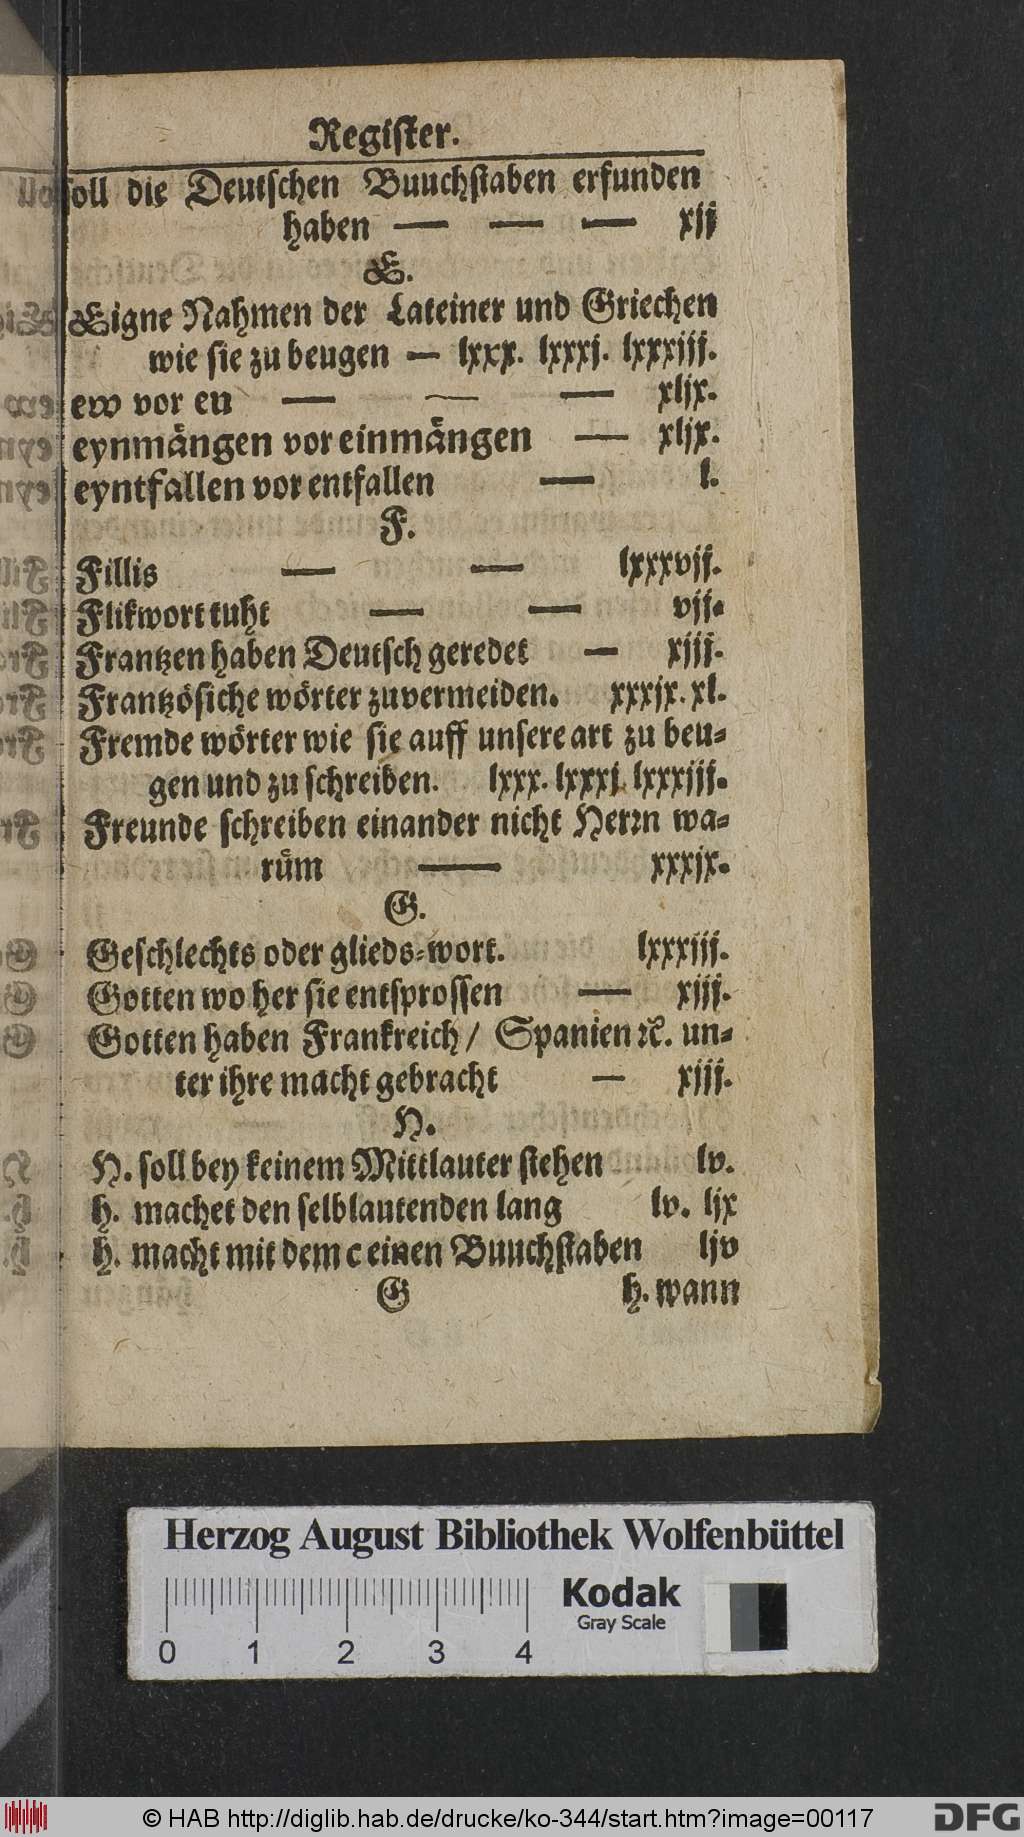 Register.
soll die Deutschen Buuchstaben erfunden
haben — — — xij
E.
Eigne Nahmen der Lateiner und Griechen
wie sie zu beugen — lxxx. lxxxj. lxxxiij.
ew vor en — — — xljx.
eynmången vor einmången — xljx.
eyntfallen vor entfallen — l.
F.
Fillis — — lxxxvij.
Flikwort tuht — — vij.
Frantzen haben Deutsch geredet — xiij.
Frantzösiche wörter zuvermeiden. xxxjx. xl.
Fremde wörter wie sie auff unsere art zu beu-
gen und zu schreiben. lxxx. lxxxj. lxxxiij.
Freunde schreiben einander nicht Herrn wa-
rům — xxxjx.
G.
Geschlechts oder glieds-wort. lxxxiij.
Gotten wo her sie entsprossen — xiij.
Gotten haben Frankreich / Spanien ꝛc. un-
ter ihre macht gebracht — xiij.
H.
H. soll bey keinem Mittlauter stehen lv.
h. machet den selblautenden lang lv. ljx
h. macht mit dem c einen Buuchstaben ljv
G h. wann
Herzog August Bibliothek Wolfenbüttel
Kodak
Gray Scale
0 1 2 3 4
© HAB http://diglib.hab.de/drucke/ko-344/start.htm?image=00117
DFG